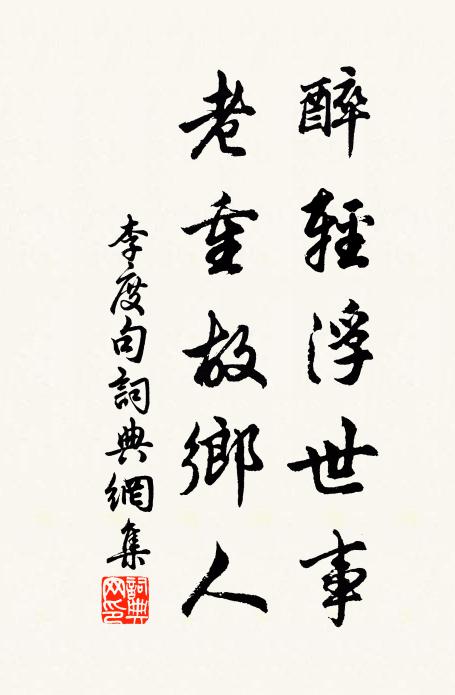 醉輕浮世事
老重故鄉人
李度句詞典網集
詞典網印